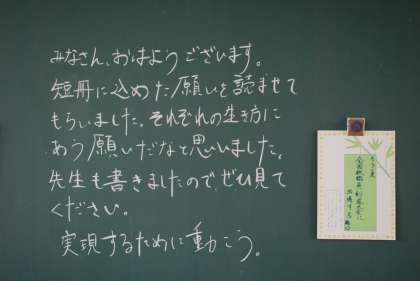 みなさん、おはようございます。
短冊に込めた願いを読ませて
もらいました。それぞれの生き方に
あう願いだなと思いました。
先生も書きましたので、ぜひ見て
ください。
実現するために動こう。